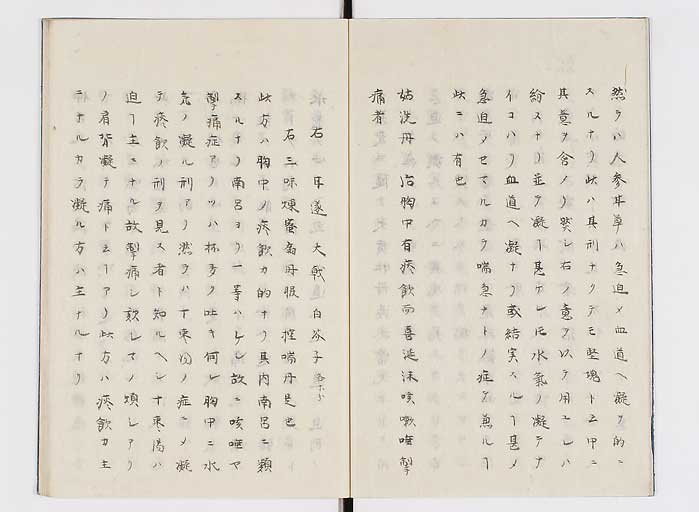 然ラハ人参甘草ハ急迫メ血道ヘ凝ヲ的ニ
スルナリ此ハ其形ナクテモ堅塊ト云中ニ
其意ヲ含ノリ然レ右ノ意ヲ以テ用ユレハ
紛スナリ並ヲ凝丁甚ナレ𪜈水氣ノ凝テナ
イコハリ血道ヘ凝ナリ或結実スル丁甚メ
急迫メセマルカラ喘急ナトノ症ヲ兼ル丁
此ニハ有也
姑洗丹 治胸中有痰飲而喜涎沫咳嗽唾掣
痛者
右 甘遂 大戟 白芥子
右三味煉蜜為丹服 控喘丹是也
此方ハ胸中ノ痰飲カ的ナリ其内南呂ニ類
スルナリ南呂ヨリ一等ハケシ故ニ咳唾ヤ
掣痛症アリツハ杯多ク吐キ何レ胸中ニ水
氣ノ凝ル形アリ然ラハ十棗湯ノ症ニメ凝
テ痰飲ノ形ヲ見ス者ト知ルヘシ十棗湯ハ
迫丁主ニナル故掣痛シ欬シテノ煩レアリ
ノ肩背凝テ痛ト云丁アリ此方ハ痰飲カ主
ニナルカラ凝ル方ハ主ナルナリ